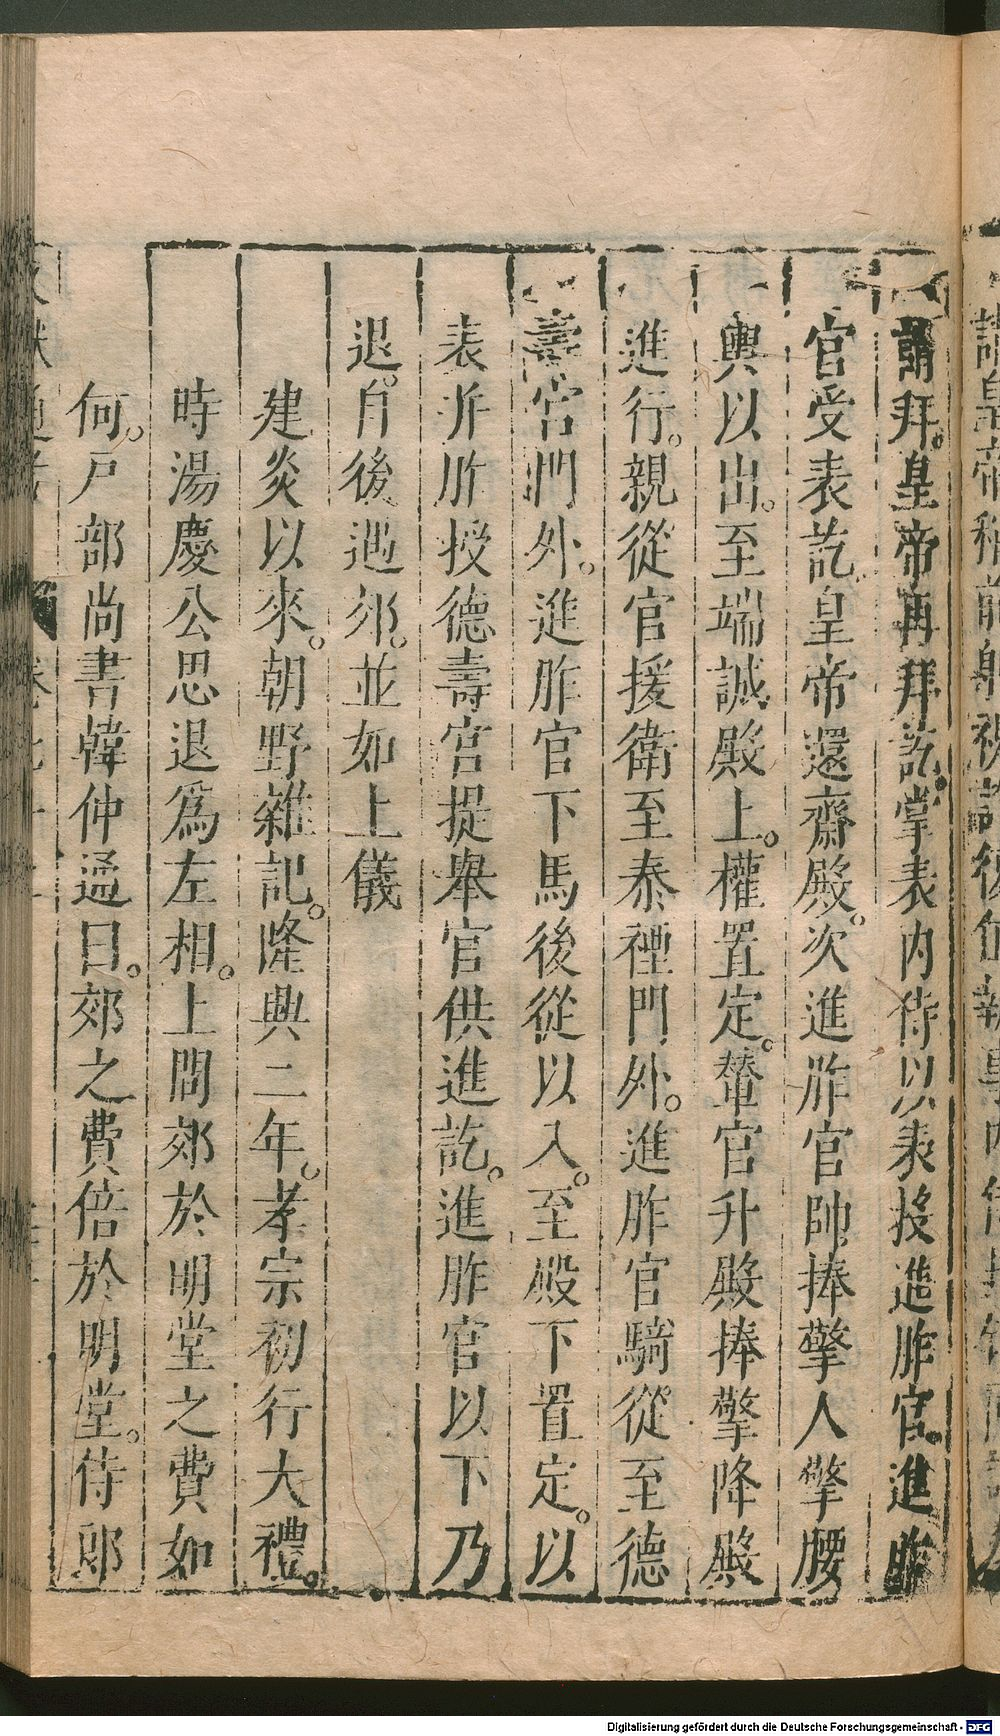 請拜。皇帝再拜訖。掌表内侍以表授進胙官。進胙
官受表訖。皇帝還齋殿。次進胙官帥捧擎人擎腰
輿以出。至端誠殿上。權置定。輦官升殿捧擎降殿
進行。親從官援衛至泰禋門外。進胙官騎從至德
壽宮門外。進胙官下馬後從以入。至殿下置定。以
表并胙授德壽宮提舉官供進訖。進胙官以下乃
退。自後遇郊。並如上儀
建炎以來。朝野雜記。隆興二年。孝宗初行大禮。
時湯慶公思退爲左相。上問郊於明堂之費如
何。戸部尚書韓仲通曰。郊之費倍於明堂。侍郎
Digitalisierung gefördert durch die Deutsche Forschungsgemeinschaft - DFG